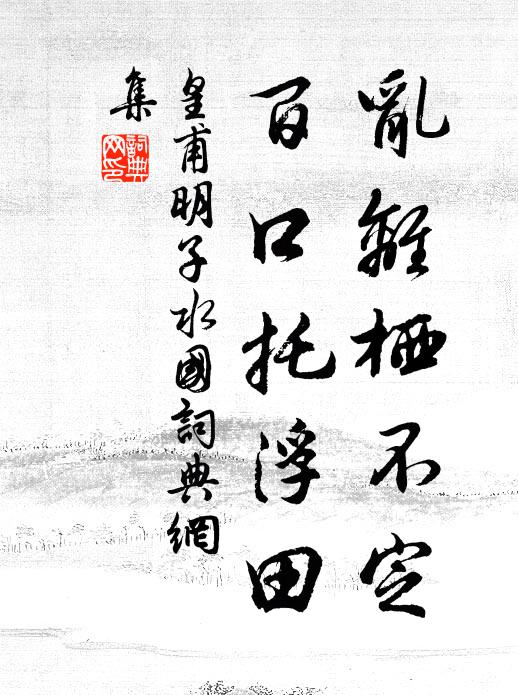 亂離栖不定
百口托浮田
皇甫明子水國詞典網
集
詞典網印